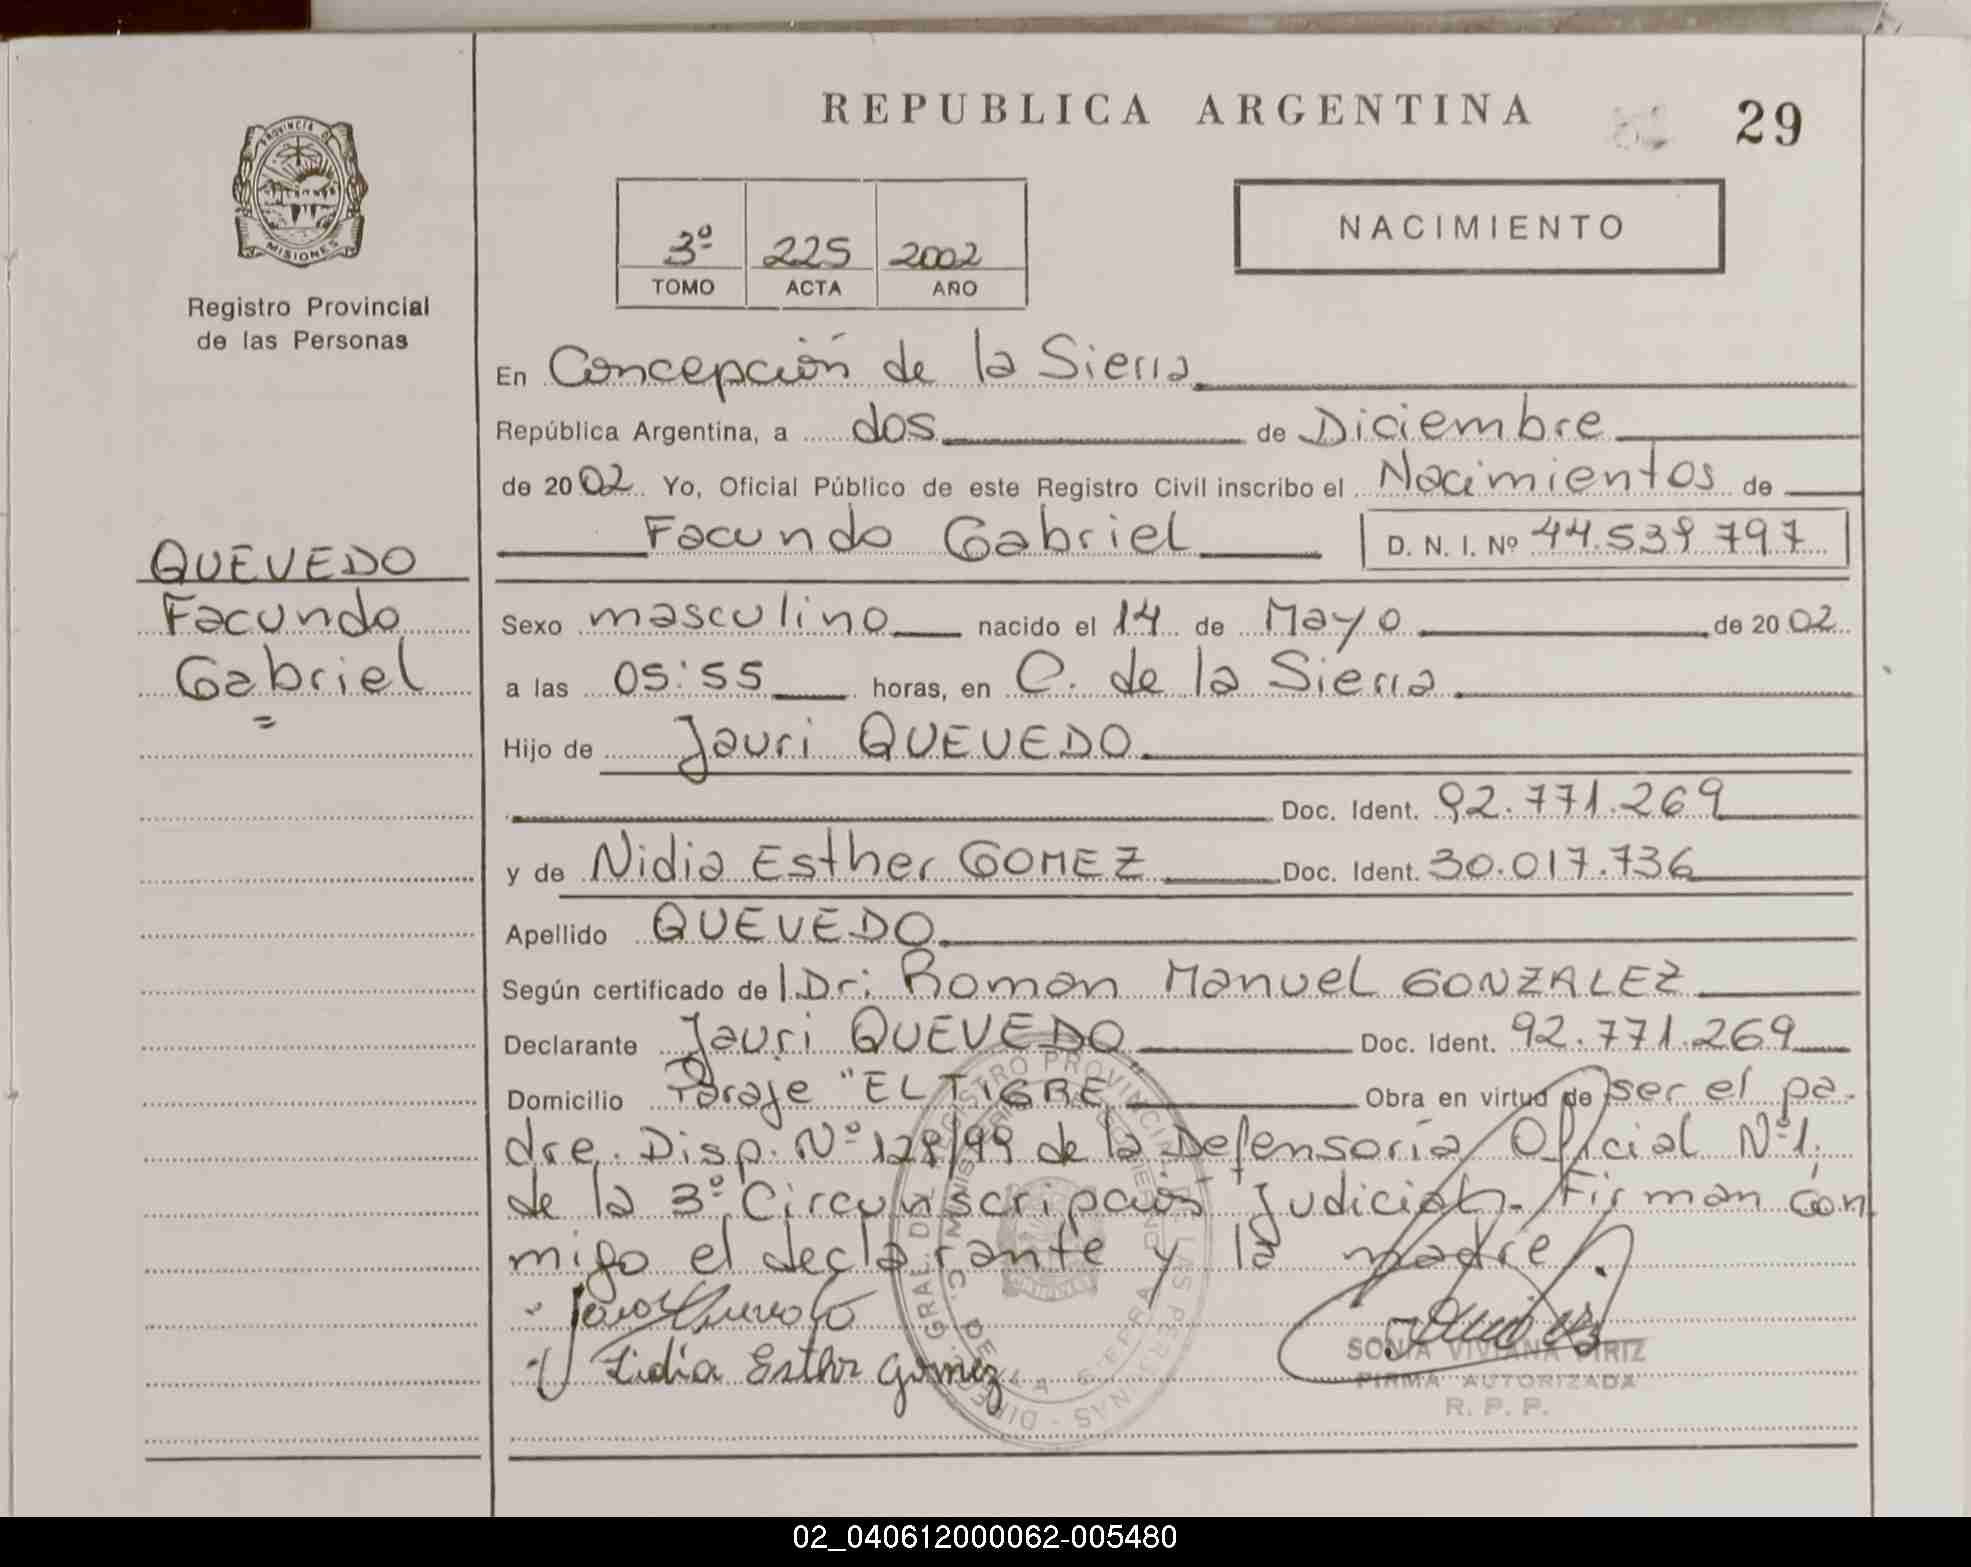 REPUBLICA ARGENTINA
29
PROVINCIA DE
MISIONES
Registro Provincial
de las Personas
3º 225 2002
TOMO ACTA AÑO
NACIMIENTO
En Concepción de la Sierra
República Argentina, a dos de Diciembre
de 2002 Yo, Oficial Público de este Registro Civil inscribo el Nacimientos de
Facundo Gabriel D. N. I. Nº 44.539 797
QUEVEDO
Facundo
Gabriel
=
Sexo masculino nacido el 14 de Mayo de 2002
a las 05:55 horas, en C. de la Sierra
Hijo de Jauri QUEVEDO
Doc. Ident. 92.771.269
y de Nidia Esther GOMEZ Doc. Ident. 30.017.736
Apellido QUEVEDO
Según certificado de l Dr: Roman Manuel GONZALEZ
Declarante Jauri QUEVEDO Doc. Ident. 92.771.269
Domicilio Paraje "EL TIGRE" Obra en virtud de ser el pa-
dre. Disp. Nº 128/99 de la Defensoría Oficial Nº1,
de la 3º Circunscripción Judicial.- Firman con
migo el declarante y la madre.
Esther Gomez
SONIA VIVIANA PIRIZ
FIRMA AUTORIZADA
R. P. P.
02_040612000062-005480